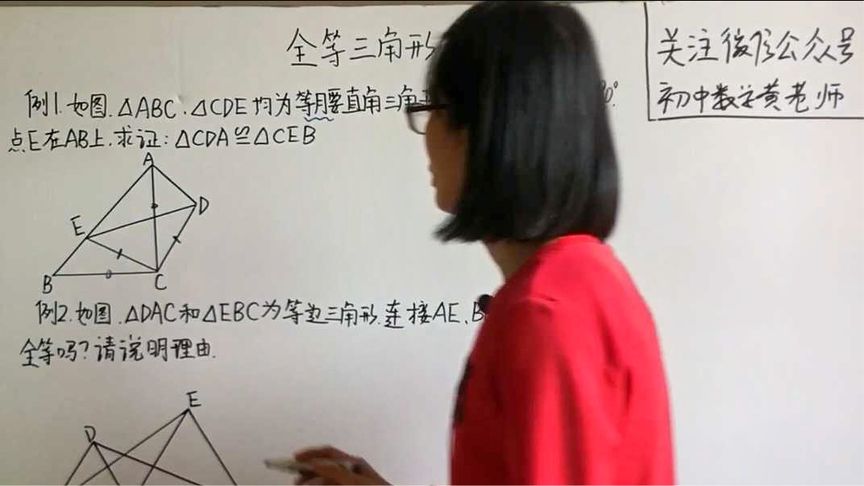 全等三角形
关注微信公众号
初中数学黄老师
例1.如图.△ABC.△CDE均为等腰直角三角
点E在AB上.求证:△CDA≌△CEB
A
D
E
B
C
例2.如图.△DAC和△EBC为等边三角形.连接AE、B
全等吗?请说明理由.
E
D